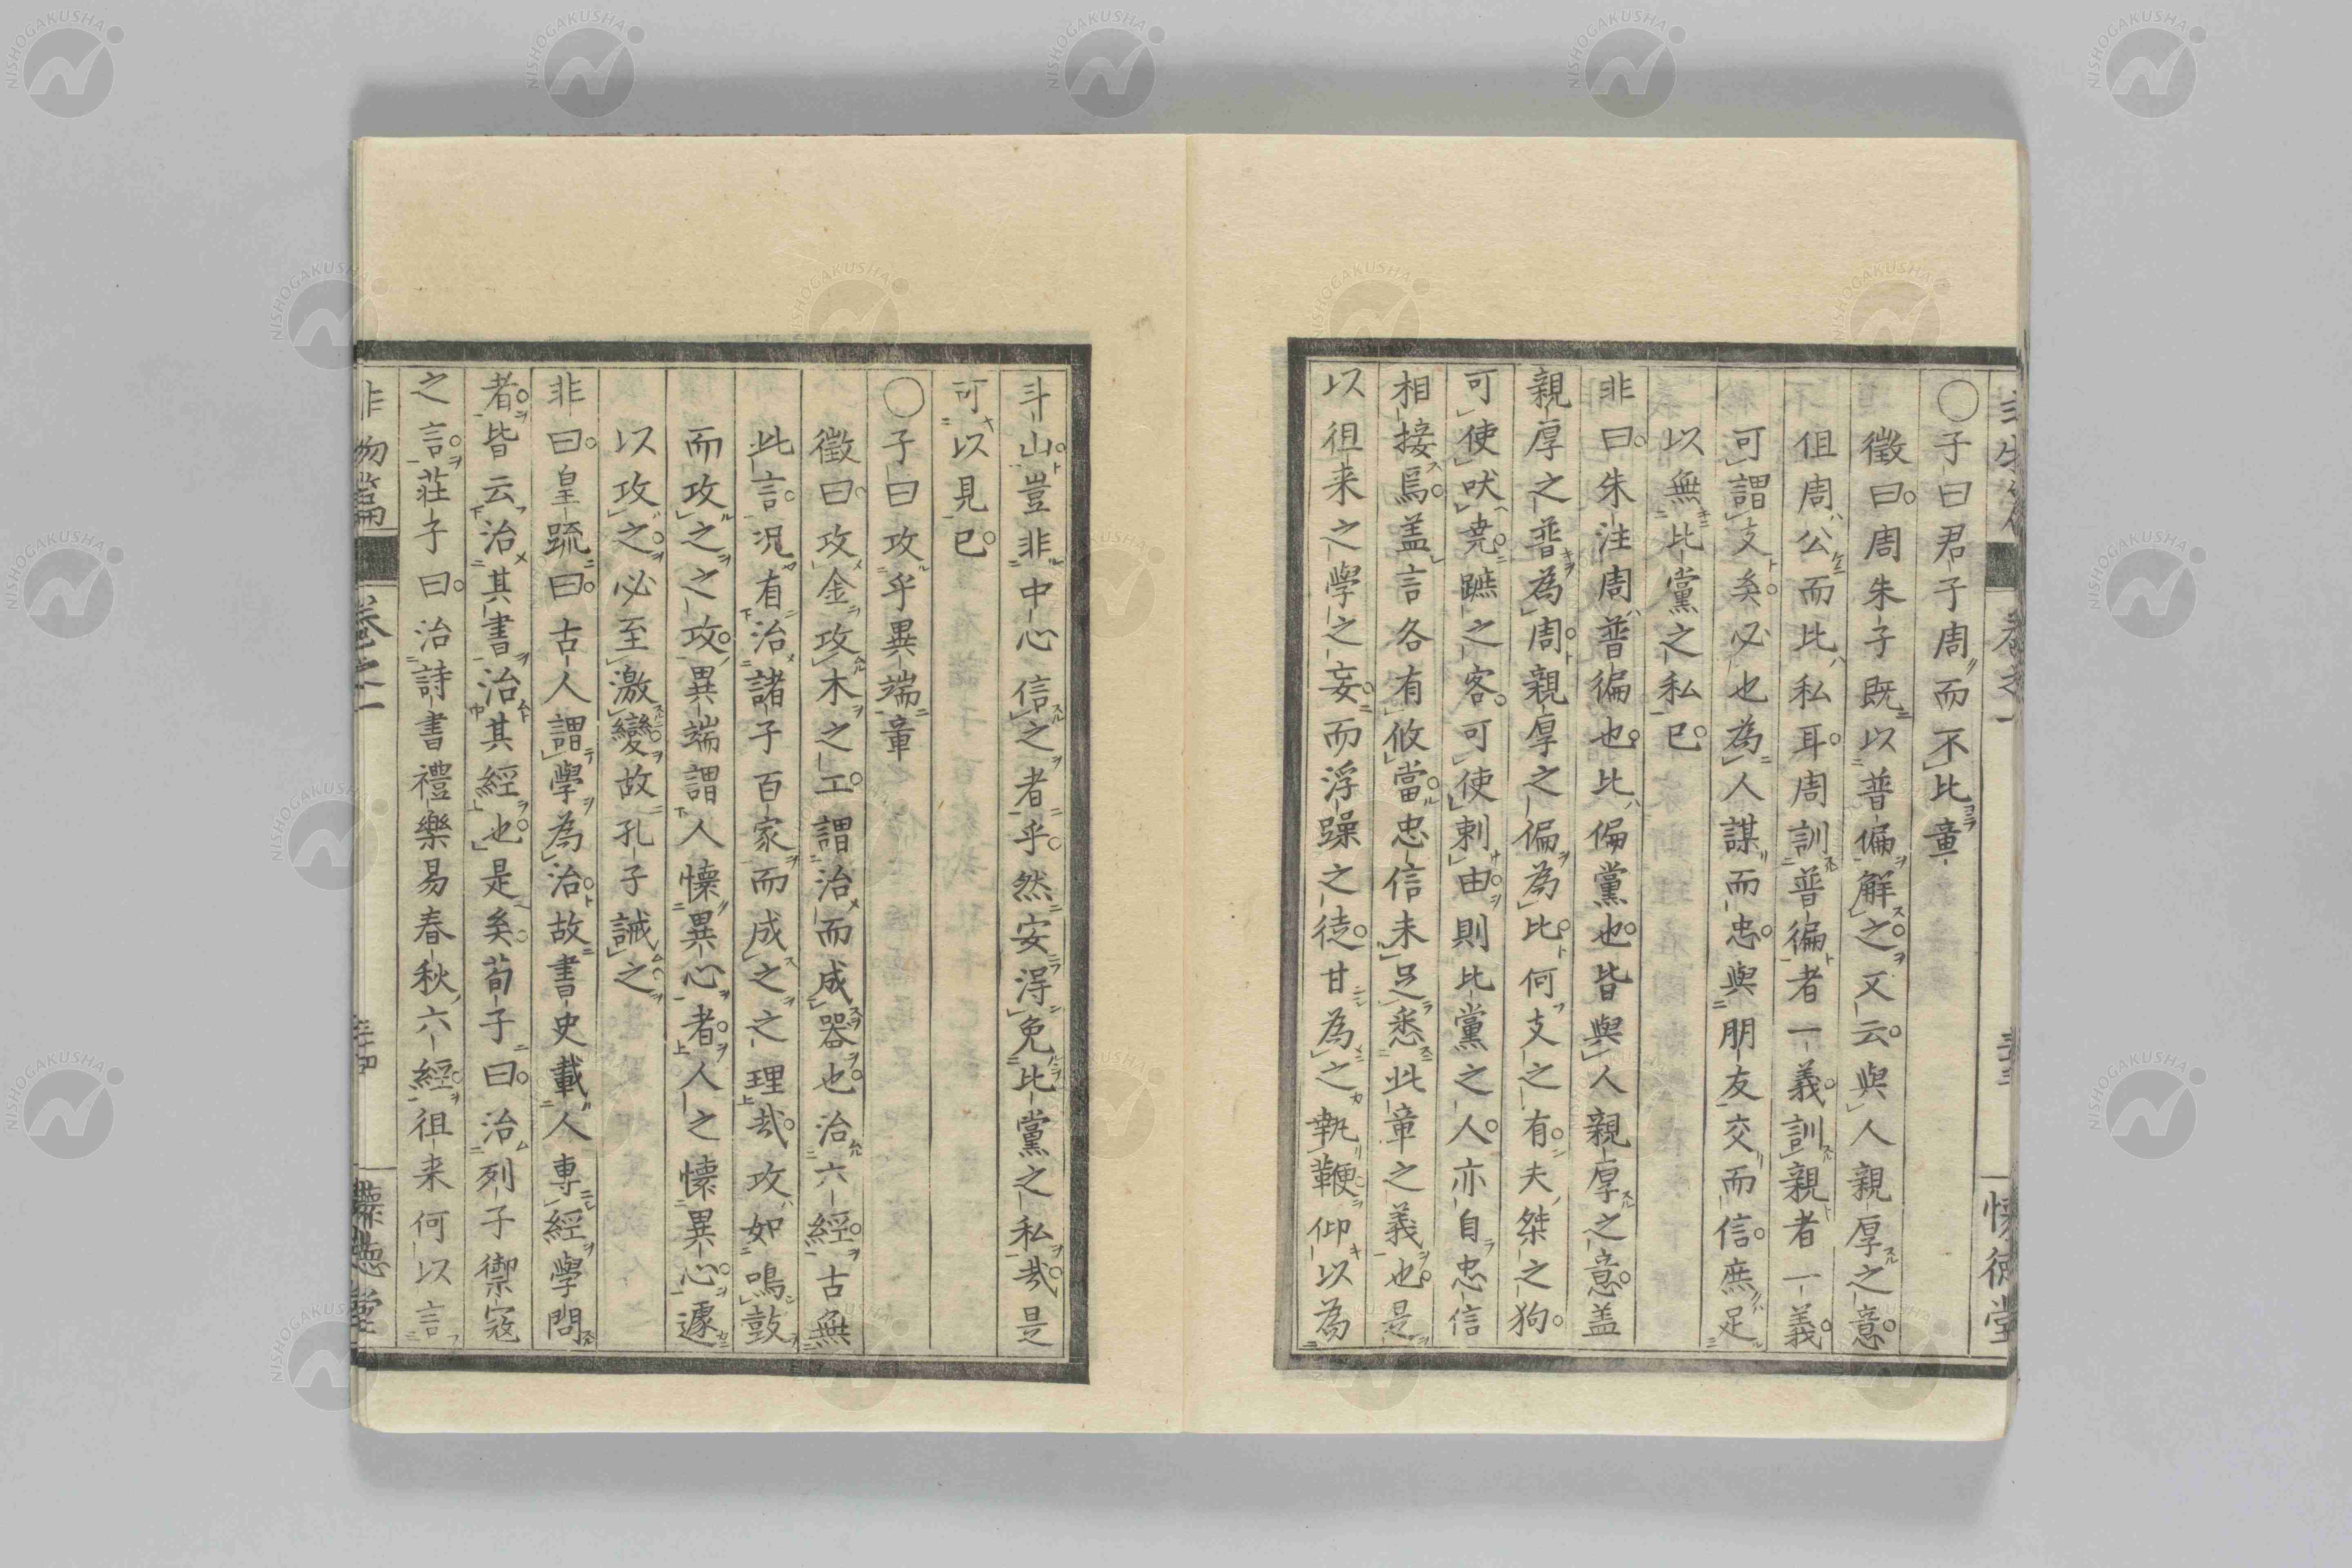 〇子曰君子周而不比章
徵曰周朱子既以普徧解之又云與人親厚之意
但周公而比私耳周訓普徧者一義訓親者一義
可謂支矣必也為人謀而忠與朋友交而信庶足
以無比黨之私已
非曰朱注周普徧也比偏黨也皆與人親厚之意盖
親厚之普為周親厚之偏為比何支之有夫桀之狗
可使吠堯蹠之客可使刺由則比黨之人亦自忠信
相接焉盖言各有攸當忠信未足悉此章之義也是
以徂来之學之妄而浮躁之徒甘為之執鞭仰以為
斗山豈非中心信之者乎然安得免比黨之私哉是
可以見已
〇子曰攻乎異端章
徵曰攻金攻木之工謂治而成器也治六經古無
此言況有治諸子百家而成之之理哉攻如鳴鼓
而攻之之攻異端謂人懷異心者人之懷異心遽
以攻之必至激變故孔子誡之
非曰皇疏曰古人謂學為治故書史載人專經學問
者皆云治其書治其經也是矣荀子曰治列子禦寇
之言莊子曰治詩書禮樂易春秋六經徂来何以言
非物篇 卷之一 三十四 懷德堂